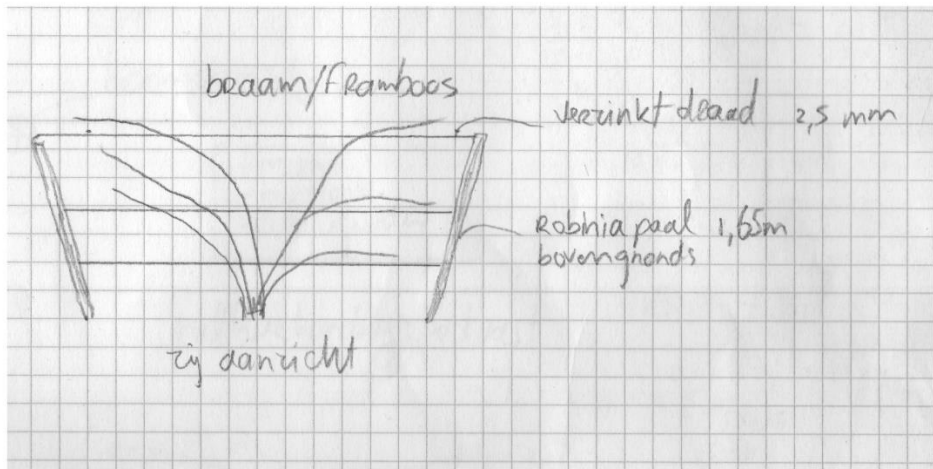 braam/framboos
verzinkt draad 2,5 mm
Robinia paal 1,65m
bovengronds
zij aanzicht